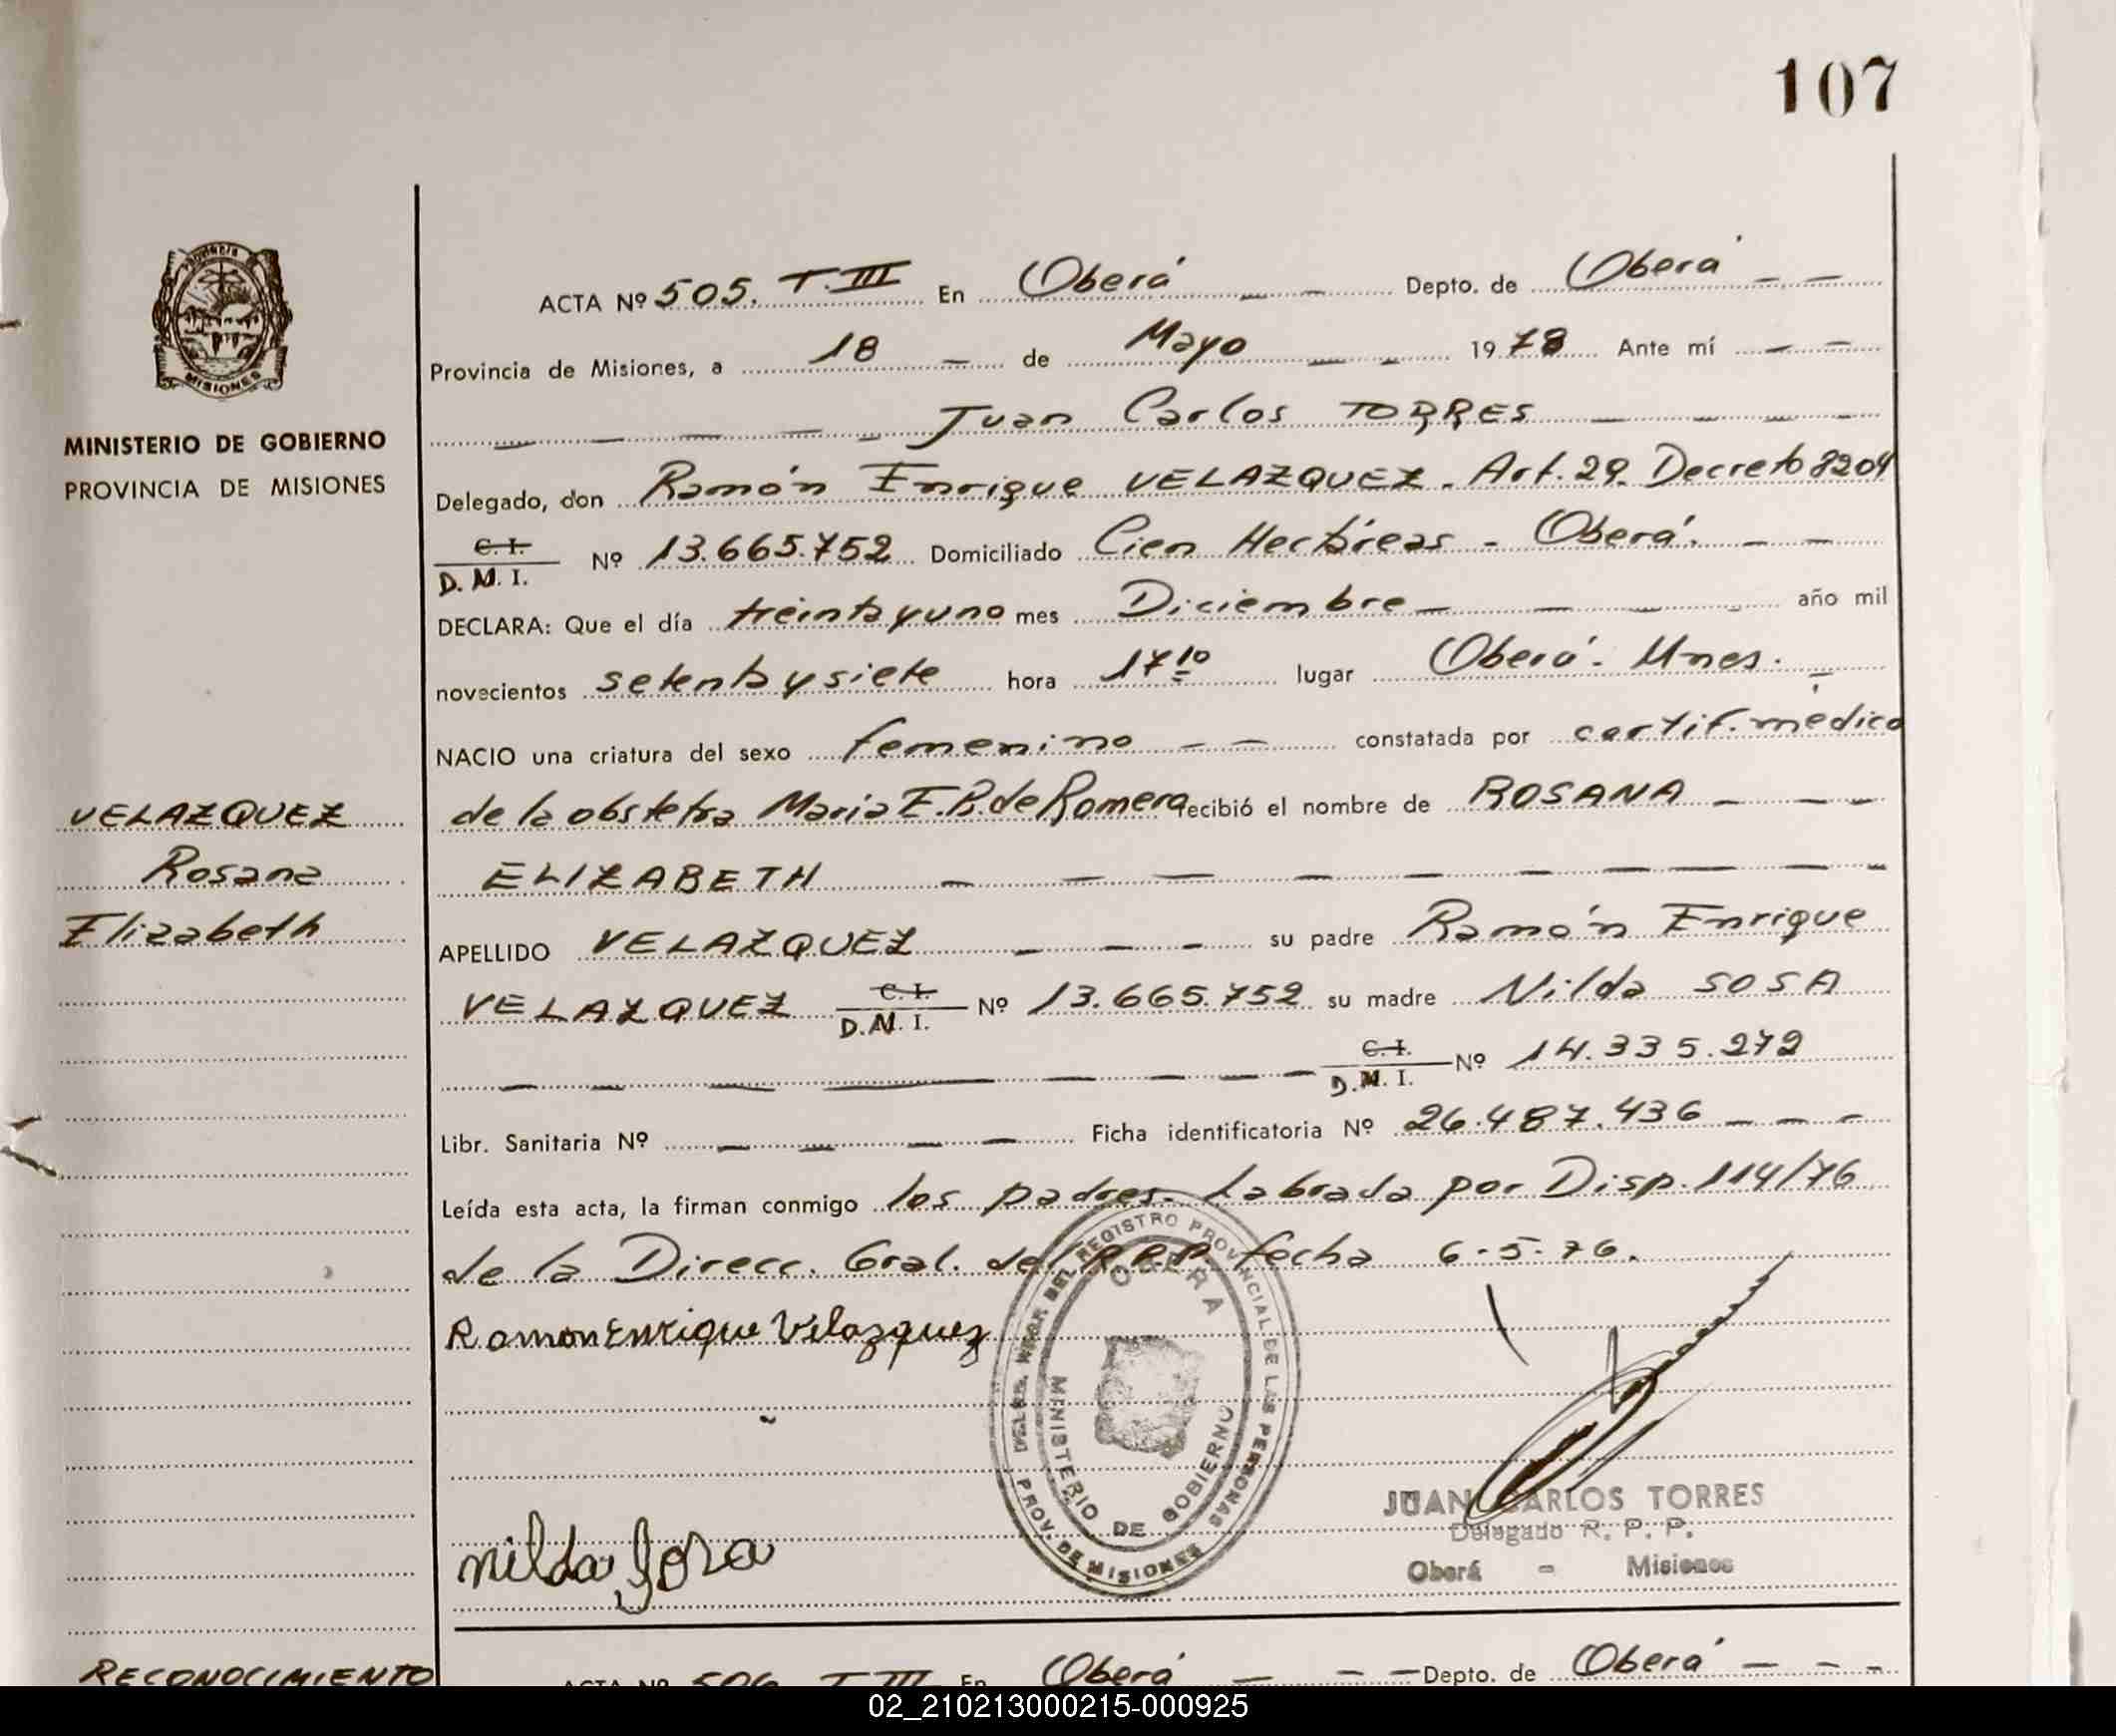 107
Provincia
MISIONES
MINISTERIO DE GOBIERNO
PROVINCIA DE MISIONES
VELAZQUEZ
Rosana
Elizabeth
ACTA Nº 505. T. III En Oberá Depto. de Oberá
Provincia de Misiones, a 18 de Mayo 1978 Ante mí
Juan Carlos TORRES
Delegado, don Ramón Enrique VELAZQUEZ. Art. 29. Decreto 8204
C. I.
D. M. I. Nº 13.665.752 Domiciliado Cien Hectáreas - Oberá.
DECLARA: Que el día treinta y uno mes Diciembre año mil
novecientos setenta y siete hora 17 10 lugar Oberá. Mnes.
NACIO una criatura del sexo femenino constatada por certif. médico
de la obstetra María E. B. de Romera recibió el nombre de ROSANA
ELIZABETH
APELLIDO VELAZQUEZ su padre Ramón Enrique
VELAZQUEZ C. I. D. M. I. Nº 13.665.752 su madre Nilda SOSA
C. I. D. M. I. Nº 14.335.272
Libr. Sanitaria Nº Ficha identificatoria Nº 26.487.436
Leída esta acta, la firman conmigo los padres. Labrada por Disp. 114/76
de la Direcc. Gral. del R.P.P. fecha 6-5-76.
Ramon Enrique Velazquez
nilda Sosa
DEL REGISTRO PROVINCIAL DE LAS PERSONAS
PROV. DE MISIONES
OBERA
MINISTERIO DE GOBIERNO
JUAN CARLOS TORRES
Delegado R. P. P.
Oberá - Misiones
RECONOCIMIENTO
ACTA Nº 506 T. III En Oberá Depto. de Oberá
02_210213000215-000925